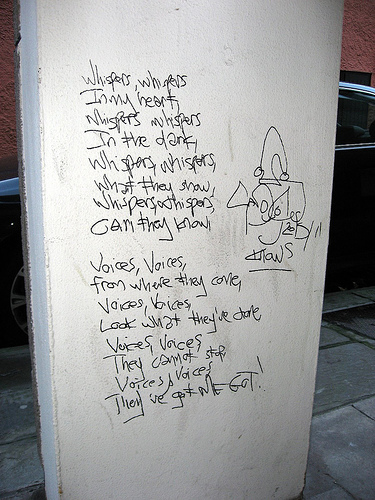 Whispers, whispers
In my heart,
Whispers whispers
In the dark,
Whispers, whispers,
What they show,
Whispers, whispers,
Can they know,
Voices, Voices,
from where they come,
Voices, Voices,
Look what they've done,
Voices, Voices,
They cannot stop
Voices, Voices
They've got me GOT!